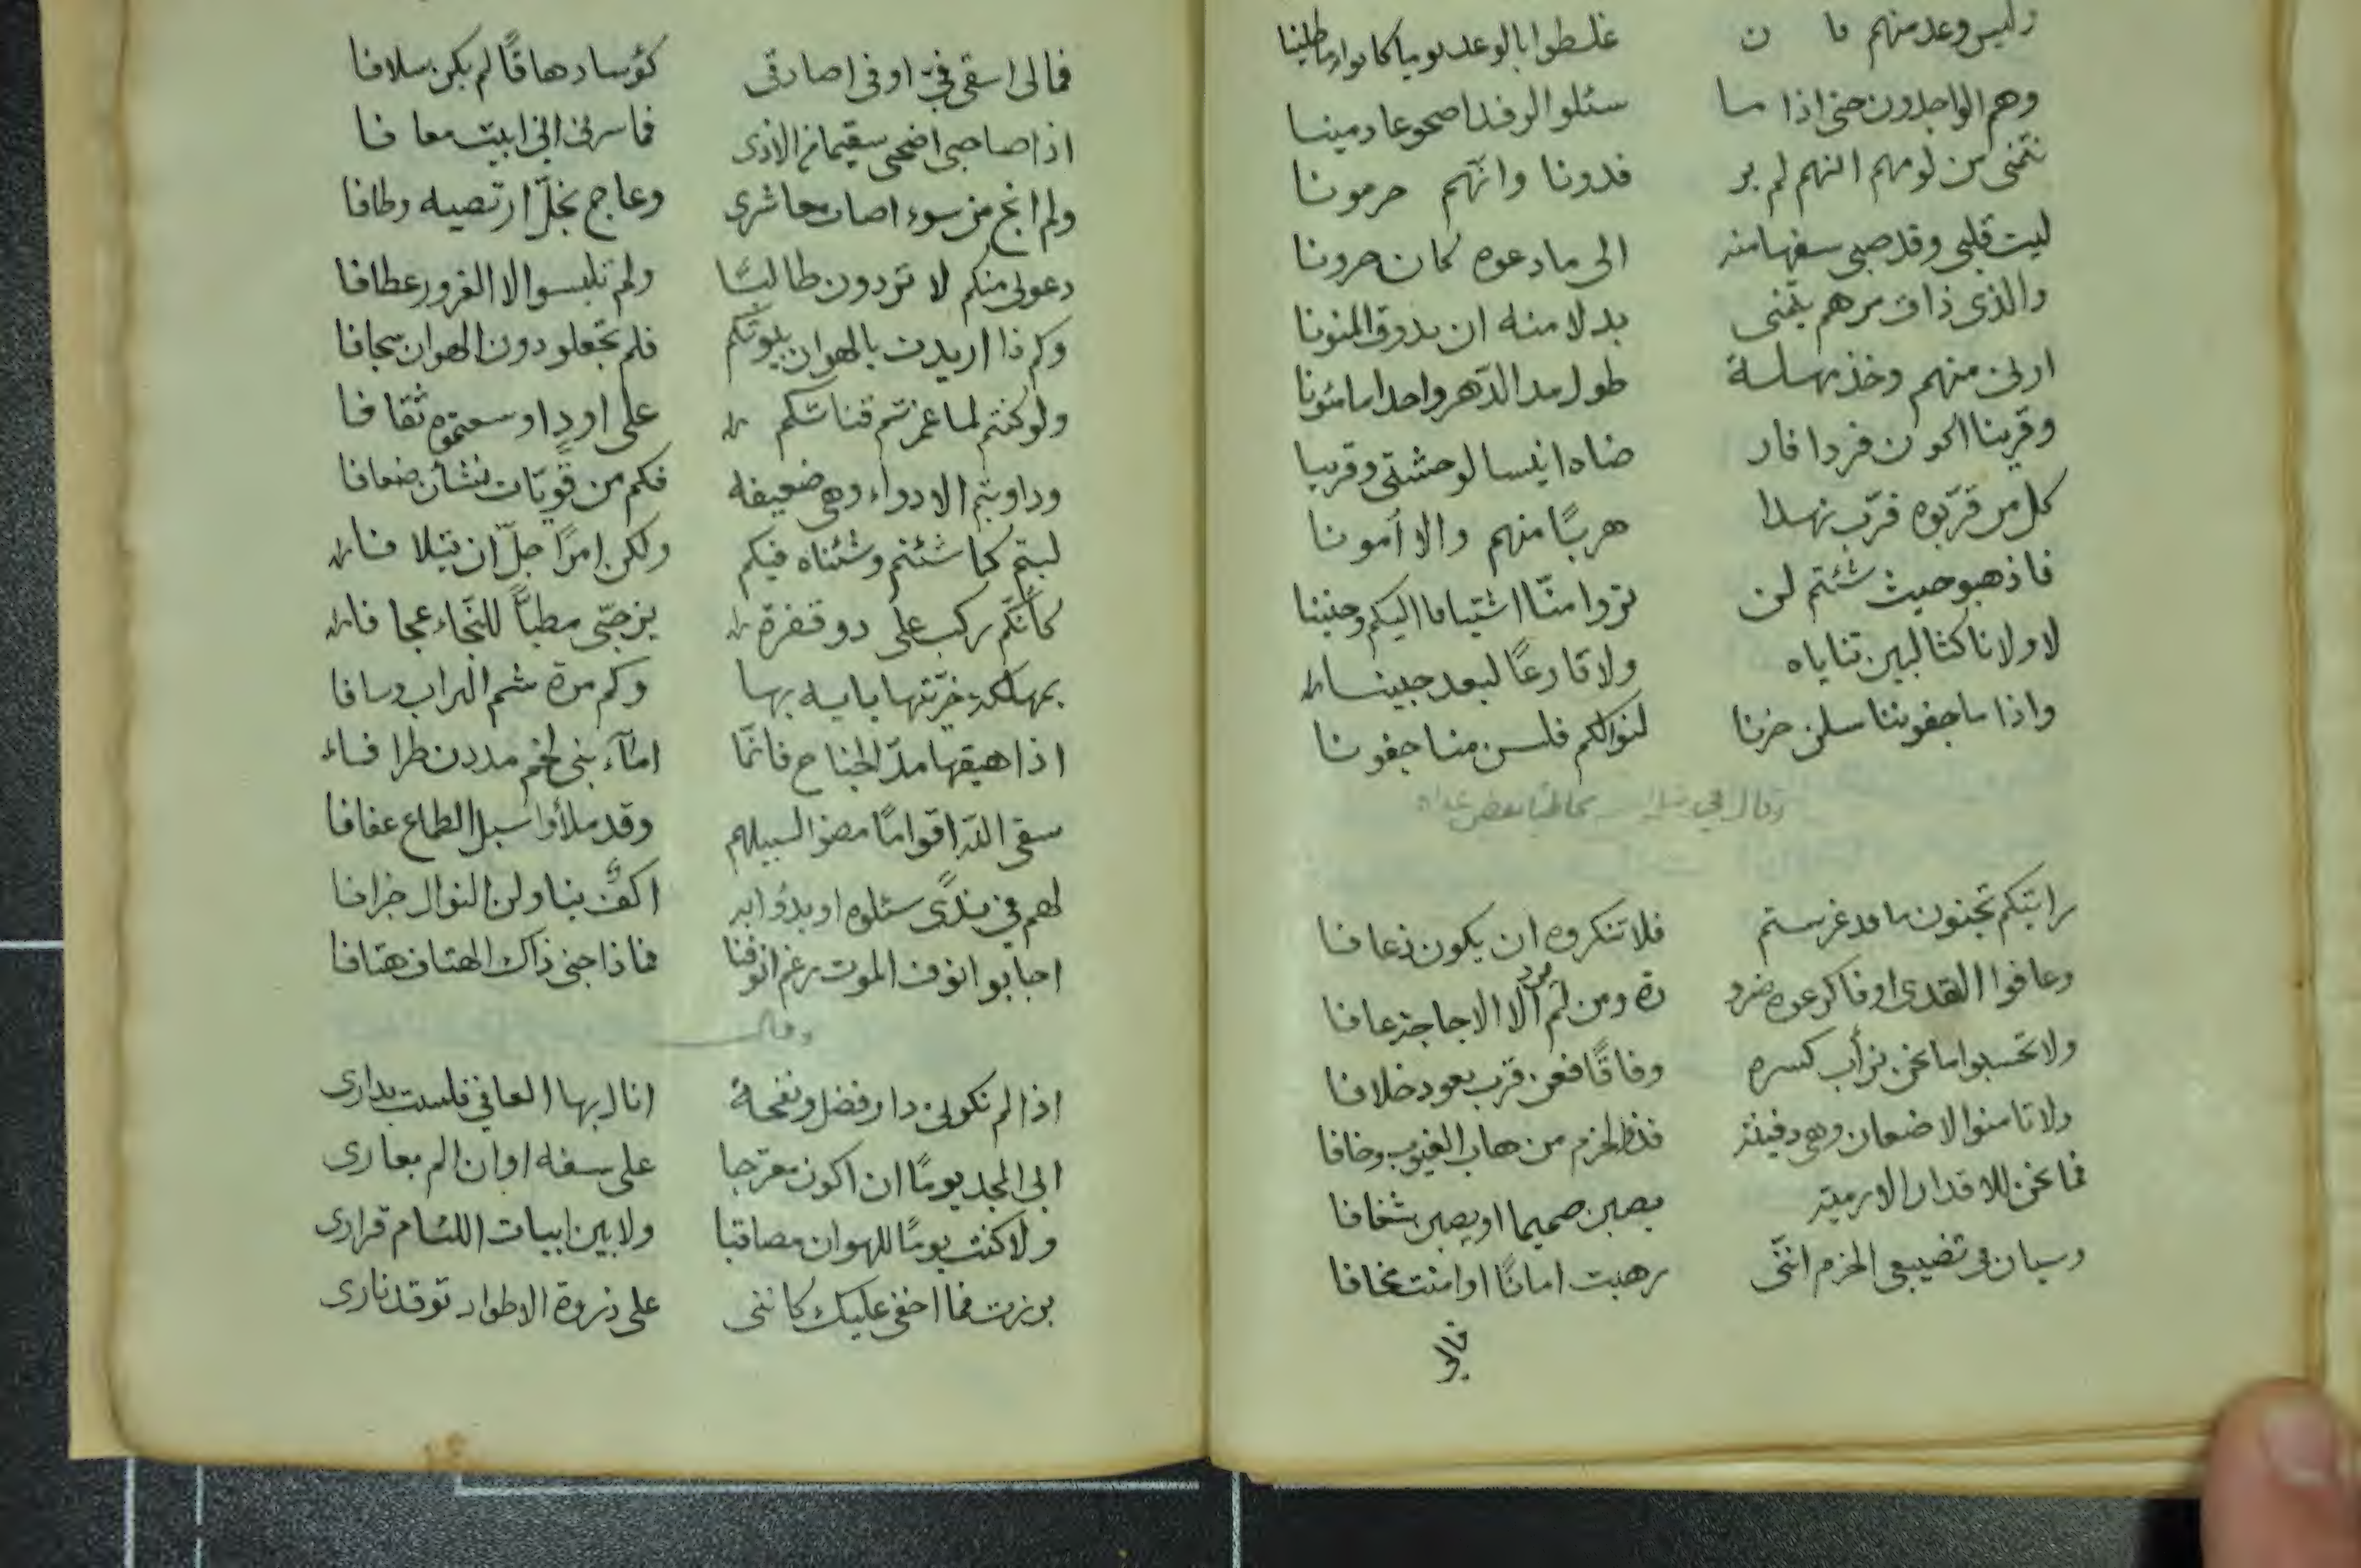 وليس وعد منهم فا ن غلطوا بالوعد يوما كانوا
وهم الواجدون حتى اذا ما سئلوا الرفد اصبحوا عادمينا
نتمنى من لومهم انهم لم ير فدونا وانهم حرمونا
ليت قلبي وقد صبى سفها منه الى ما دعوه كان حرونا
والذى ذاق مرهم يتمنى بدلا منه ان يذوق المنونا
ارنى منهم وخذ مهلة طول مدا الدهر واحدا مامئونا
وقرينا الكون فردا فار ضاه انيسا لوحشتى وقرينا
كل من قربوه قرب نهدا هربًا منهم والا أمونا
فاذهبو حيث شئتم لن تروا منّا اشتياقا اليكم وحنينا
لا ولا ناكثا لبين ثناياه ولا قارعًا لبعد جبينا
واذا ما جفوننا سلن حزنا لنواكم فلسن منا جفونا
وقال في مخاطبا بعض
رايتكم تجنون ما قد غرستم فلا تنكروه ان يكون ذعافا
وعافوا القذى اوفاكرعوه ضرو رة ومن لم يرد الا الاجاج زعافا
ولا تحسبوا ما نحن نرأب كسره وفاقًا فعن قرب يعود خلافا
ولا تامنوا الاضغان وهى دفينة فذو الحزم من هاب الغيوب وخافا
فما نحن للاقدار الا رمية يصبن صميما او يصبن شغافا
وسيان فى تضييعى الحزم اننى رهبت امانًا او امنت مخافا
فمالى
فمالى اسقى فى اوفى اصادقى كؤسا دهاقًا لم يكن سلافا
اذا صاحبى اضحى سقيما من الاذى فما سرنى انى ابيت معافا
ولم انج من سوء اصاب معاشرى وعاج بخلّ ارتضيه وطافا
دعونى منكم لا تردون طالبًا ولم تلبسوا الا الغرور عطافا
وكم ذا اريدت بالهوان بيوتكم فلم تجعلو دون الهوان سجافا
ولو كنتم لما غمزتم قناتكم على اود اوسعتموه ثقافا
وداويتم الادواء وهى ضعيفه فكم من قويّات نشأن ضعافا
لبتم كما شئتم وشئناه فيكم ولكن امرًا جلّ ان يتلافا
كأنكم ركب على دو قفرة يزجّى مطيًّا للنجاء عجافا
بمهلكة خرّيتها بايه بها وكم مرة شم التراب وسافا
اذا هيقها مدّ الجناح فانمّا امآء بنى لخم مددن طرافا
سقى الله اقوامًا مضو السبيلهم وقد ملأوا سبل الطماع عفافا
لهم فى ندًى سئلوه او بدؤابه اكفّ ينا ولن النوال جزافا
اجابو انوف الموت رغم انوفنا فماذا جنى ذاك الهتاف هتافا
وقال
اذا لم تكونى دار فضل ونفحة انال بها العافى فلست بدارى
ابى المجد يومًا ان اكون معرّجا على سفه او ان الم بعارى
ولا كنت يومًا للهوان مصاقبا ولا بين ابيات اللئام قرارى
برزت فما اخفى عليك كاننى على ذروة الاطواد توقد نارى